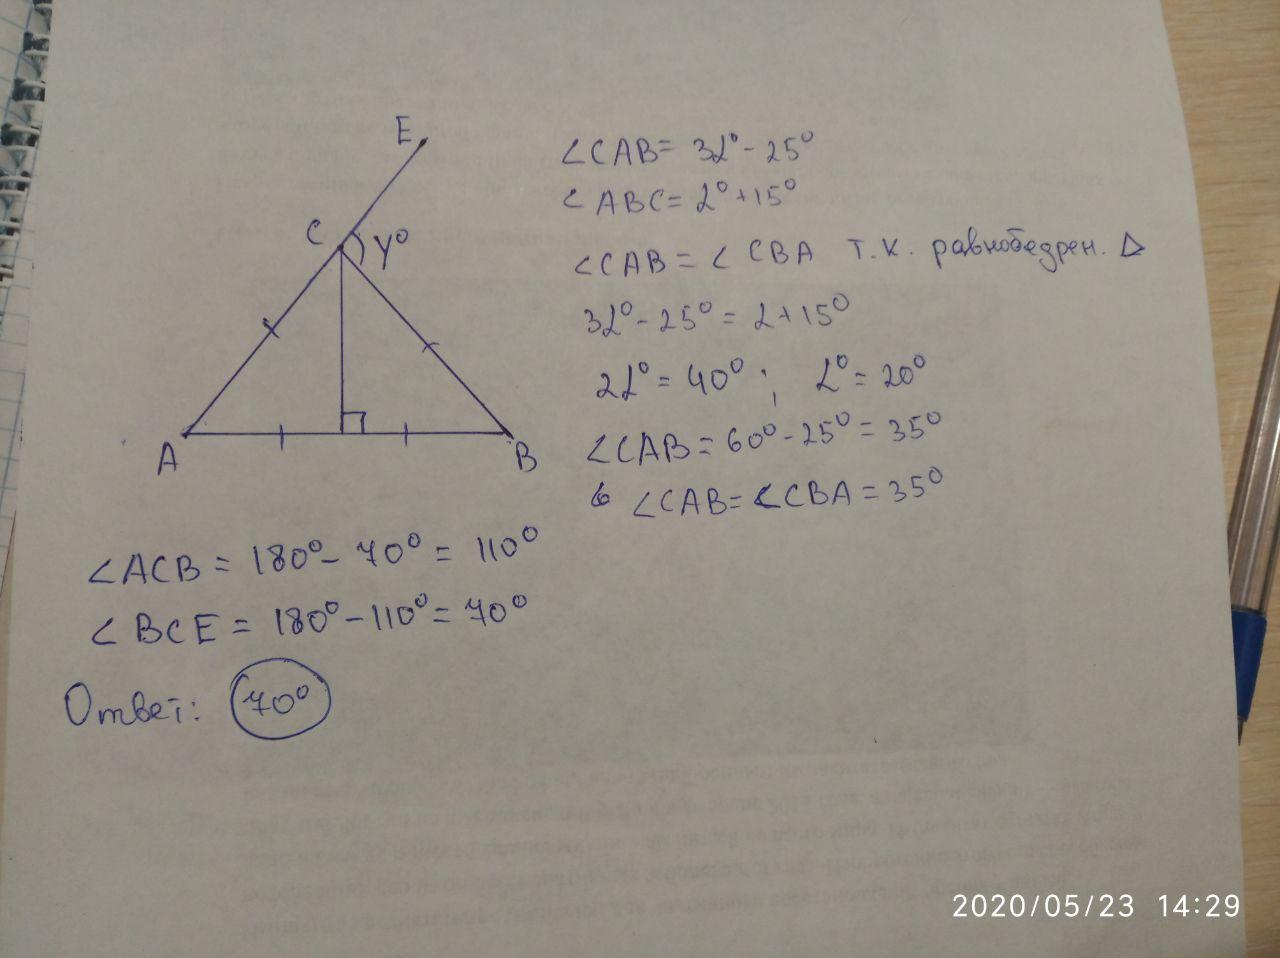 E
C
γ°
A
B
∠CAB = 3α° - 25°
∠ABC = α° + 15°
∠CAB = ∠CBA т.к. равнобедрен. Δ
3α° - 25° = α + 15°
2α° = 40° ; α° = 20°
∠CAB = 60° - 25° = 35°
∠CAB = ∠CBA = 35°
∠ACB = 180° - 70° = 110°
∠BCE = 180° - 110° = 70°
Ответ: 70°
2020/05/23 14:29